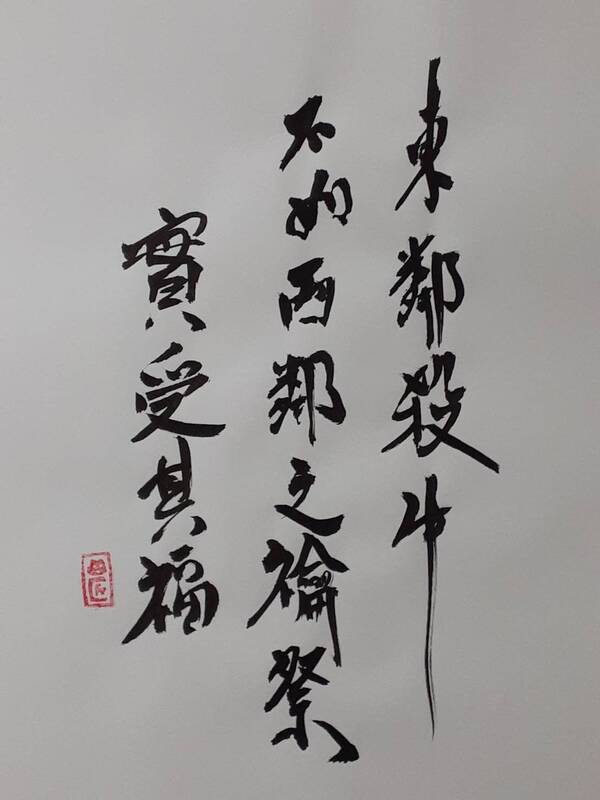 東鄰殺牛
不如西鄰之禴祭
實受其福